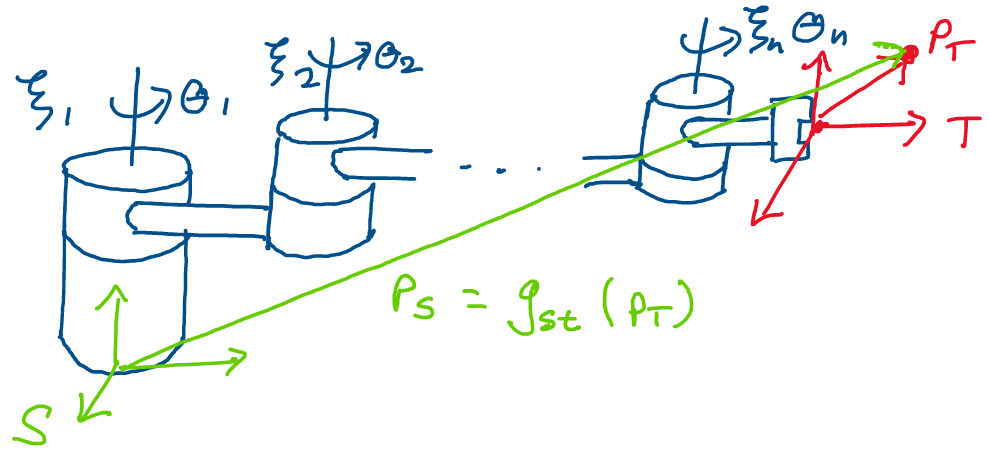 ξ₁ θ₁
ξ₂ θ₂
. . .
ξₙ θₙ
P_T
T
P_S = g_st (P_T)
S